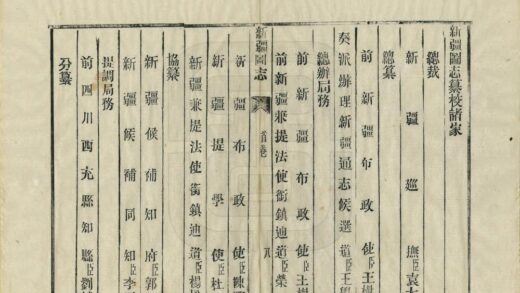 新疆圖志纂校諸家
總裁
新疆巡撫臣袁大
總纂
前新疆布政使臣王樹
奏派辦理新疆通志候選道臣王學
總辦局務
前新疆布政使臣王樹
前新疆兼提法使銜鎮迪道臣榮
新疆圖志 首卷 八
新疆布政使臣陳
新疆提學使臣杜
新疆兼提法使銜鎮迪道臣楊
協纂
新疆候補知府臣郭
新疆候補同知臣李
提調局務
前四川西充縣知縣臣劉
分纂